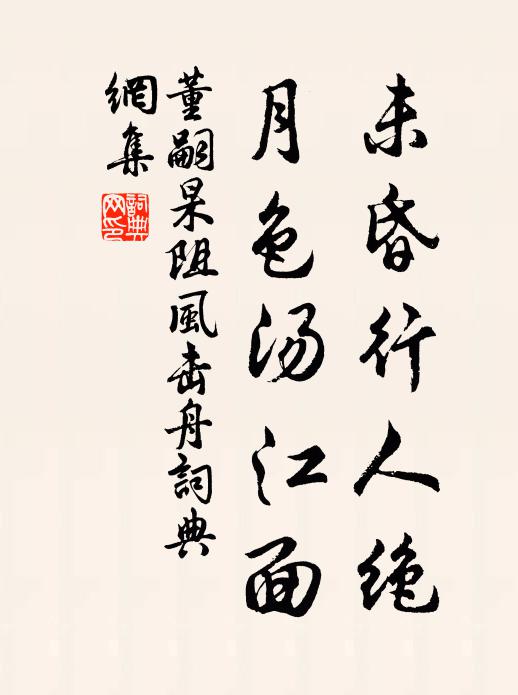 未昏行人绝
月色汤江面
董嗣杲阻風击舟詞典
網集
詞典
网印